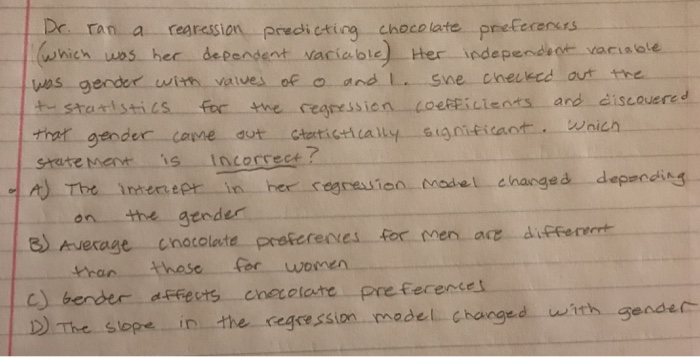 Dr. ran a regression predicting chocolate preferences
(which was her dependent variable) Her independent variable
was gender with values of 0 and 1. She checked out the
t-statistics for the regression coefficients and discovered
that gender came out statistically significant. Which
statement is incorrect?
A) The intercept in her regression model changed depending
on the gender
B) Average chocolate preferences for men are different
than those for women
C) Gender affects chocolate preferences
D) The slope in the regression model changed with gender